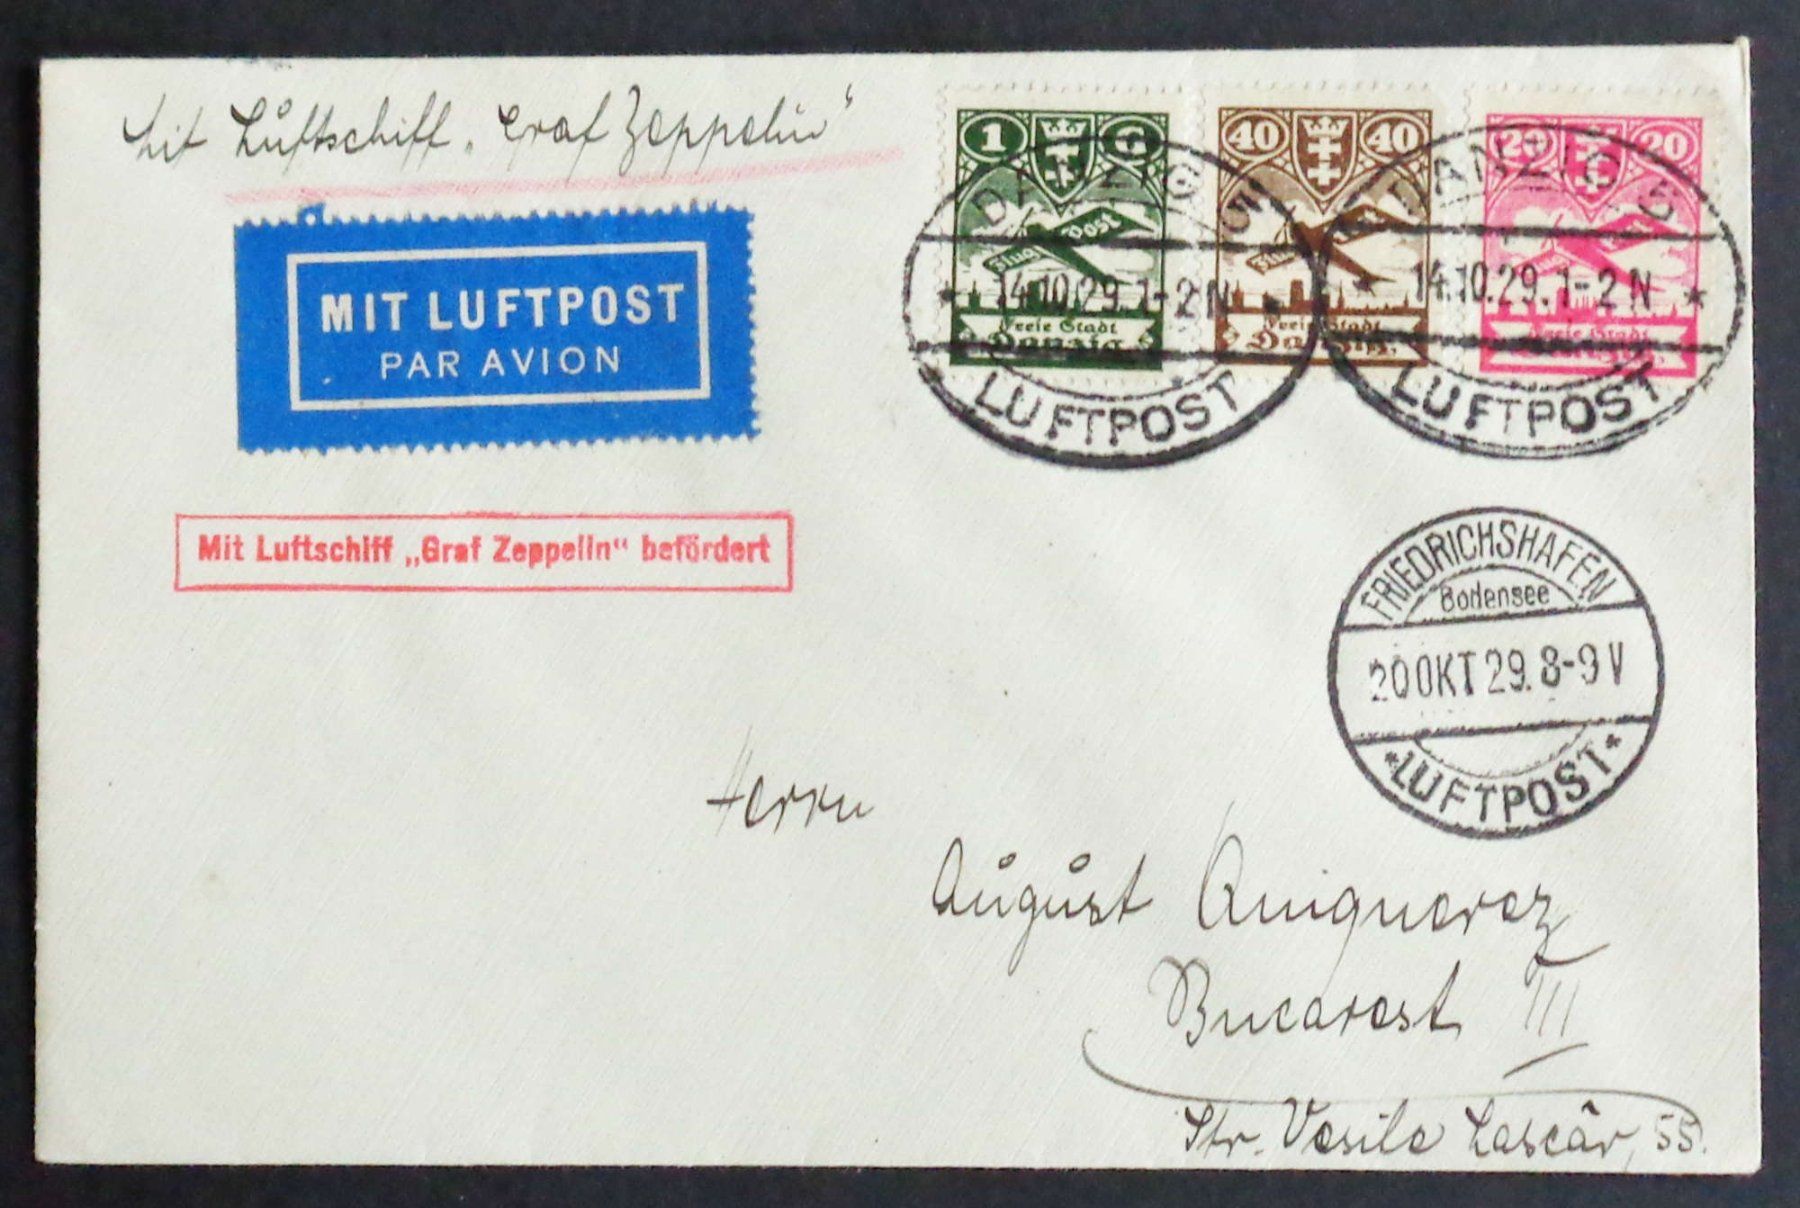 Mit Luftschiff „Graf Zeppelin“
MIT LUFTPOST
PAR AVION
Mit Luftschiff „Graf Zeppelin“ befördert
1 G
Flug Post
Freie Stadt
Danzig
40 40
Freie Stadt
Danzig
20 20
Freie Stadt
DANZIG 5
14.10.29.1-2 N
LUFTPOST
DANZIG 5
14.10.29.1-2 N
LUFTPOST
FRIEDRICHSHAFEN
Bodensee
20 OKT 29. 8-9 V
LUFTPOST
Herrn
August
Bucarest III
Str. Vasile Lascăr, 55.